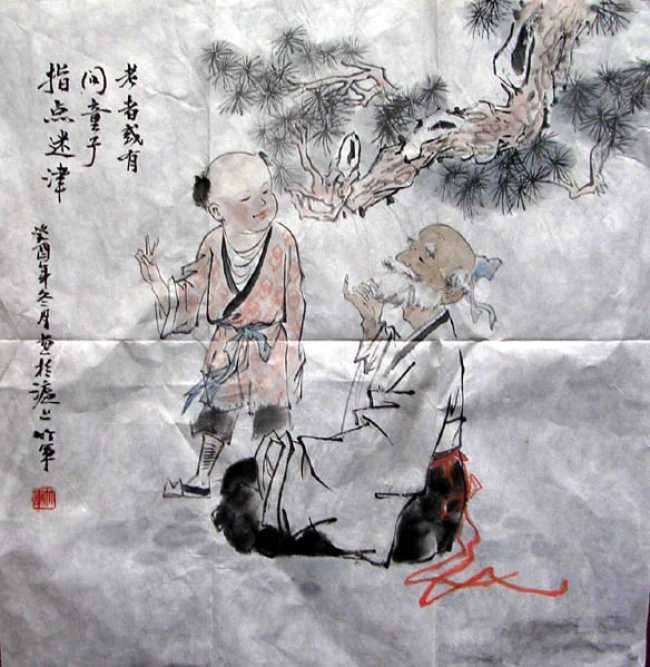 老者或有
问童子
指点迷津
癸酉年冬月画于沪上竹军